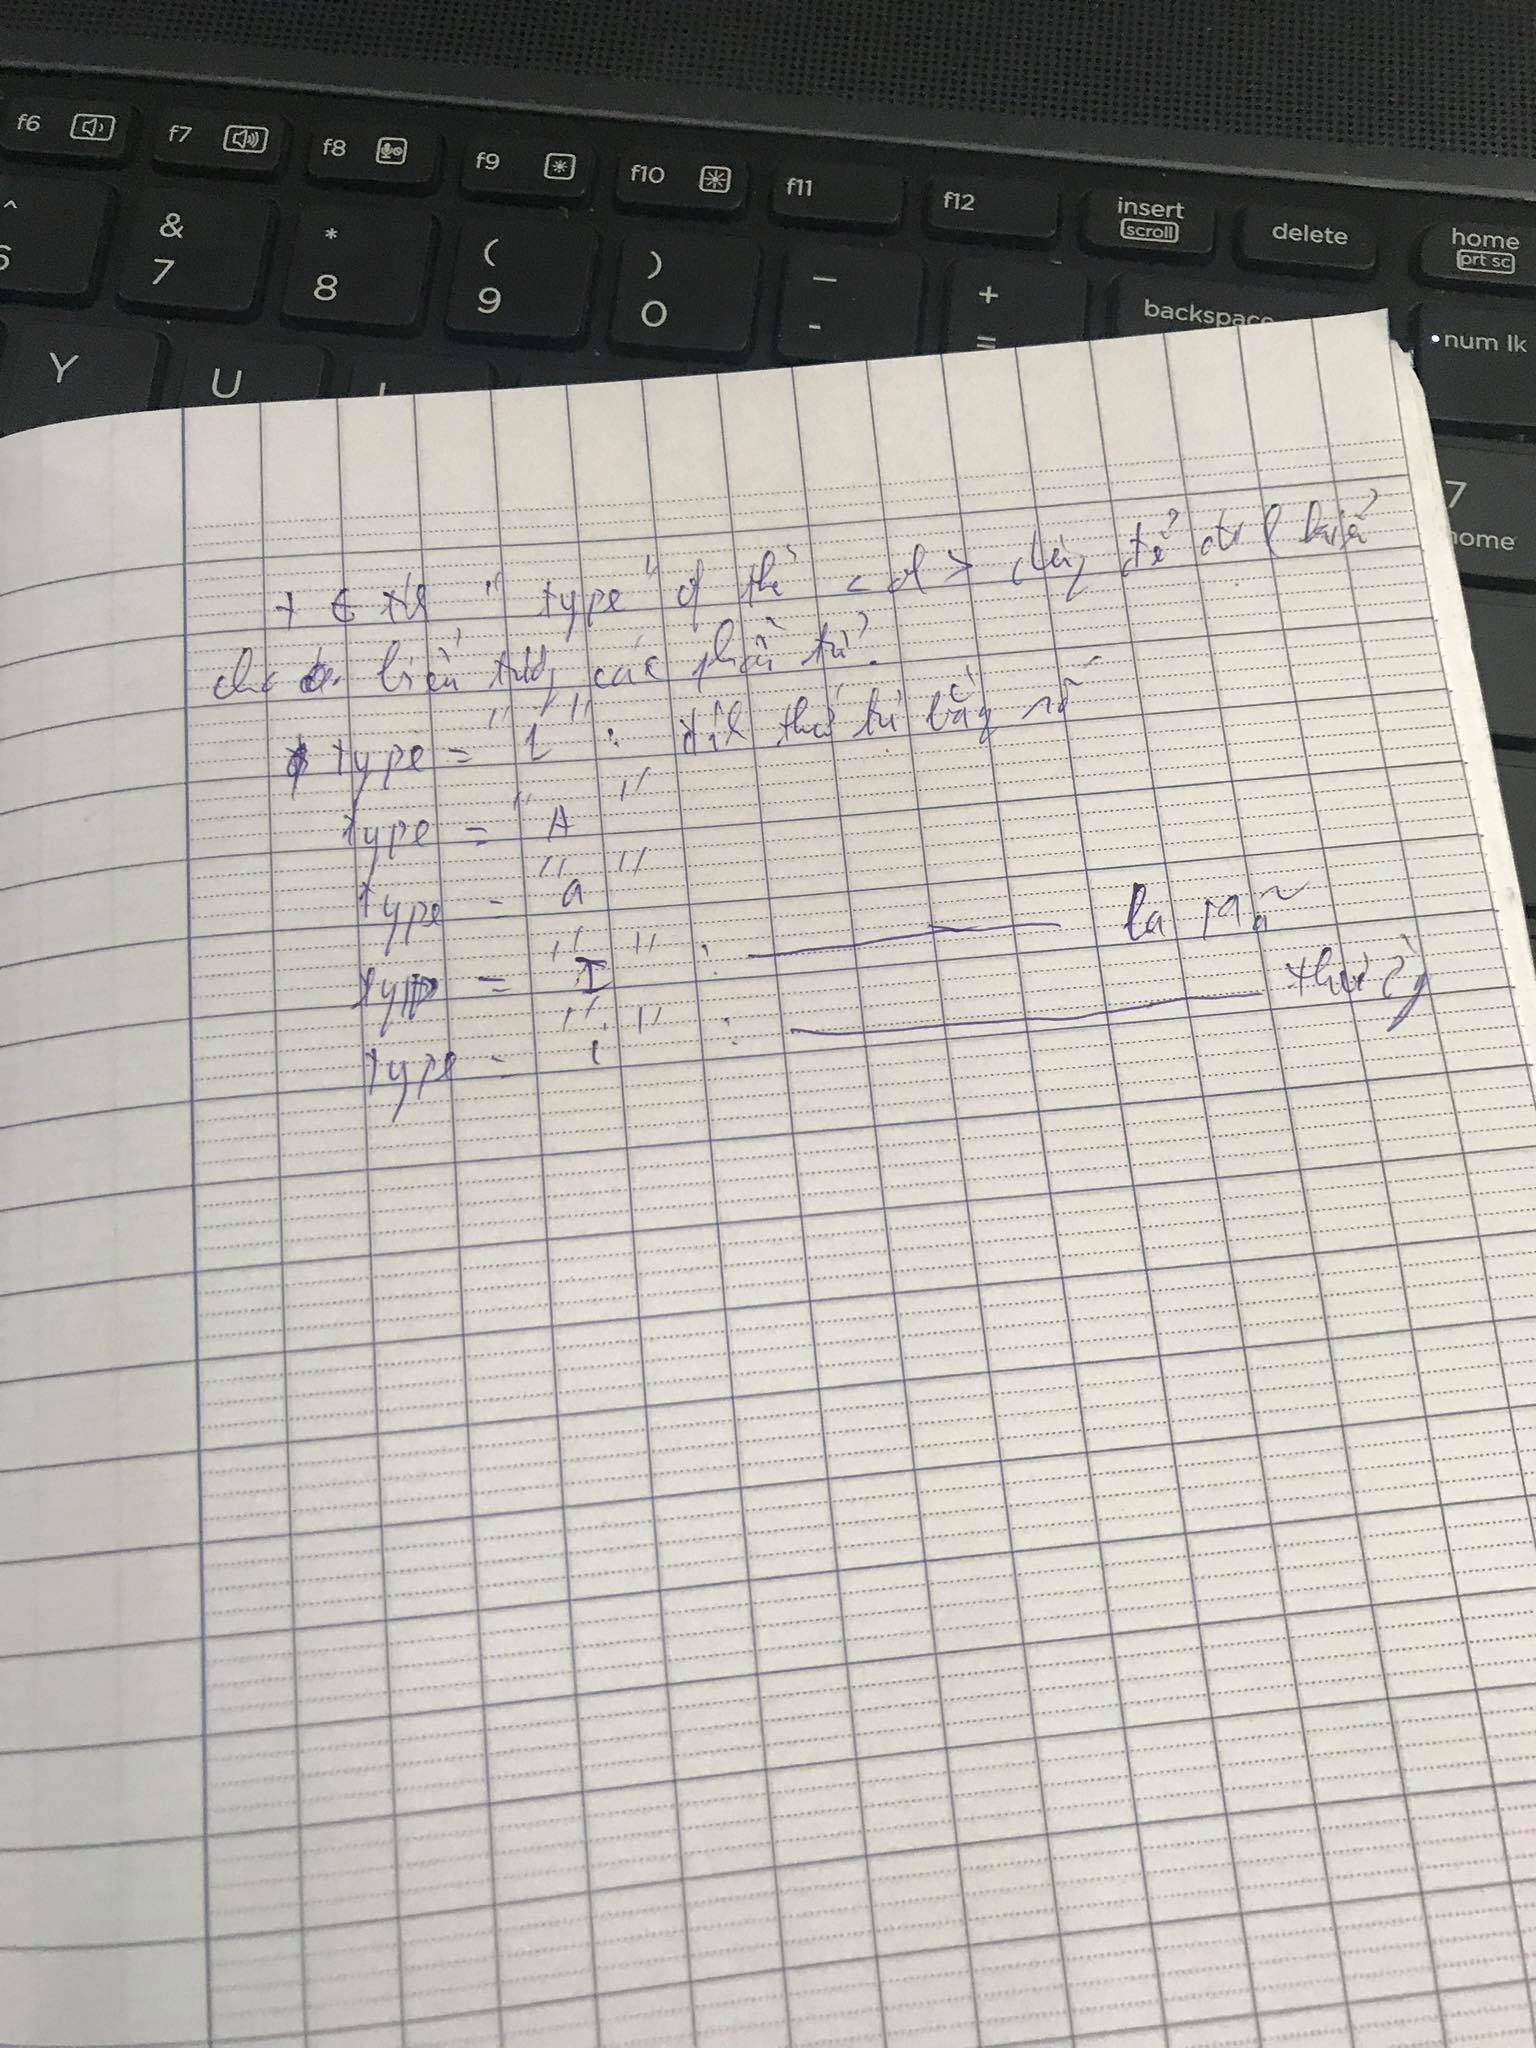 f6 f7 f8 f9 f10 f11 f12 insert scroll delete home prt sc
^ 6 & 7 * 8 ( 9 ) 0 _ - + = backspace num lk
Y U 7 home
+ "type" of thẻ <ol> để kiểu
cho biểu tượng các phần tử.
type = "1" : thứ tự bằng số
type = "A"
type = "a"
type = "I" : la Mã
type = "i" : thường